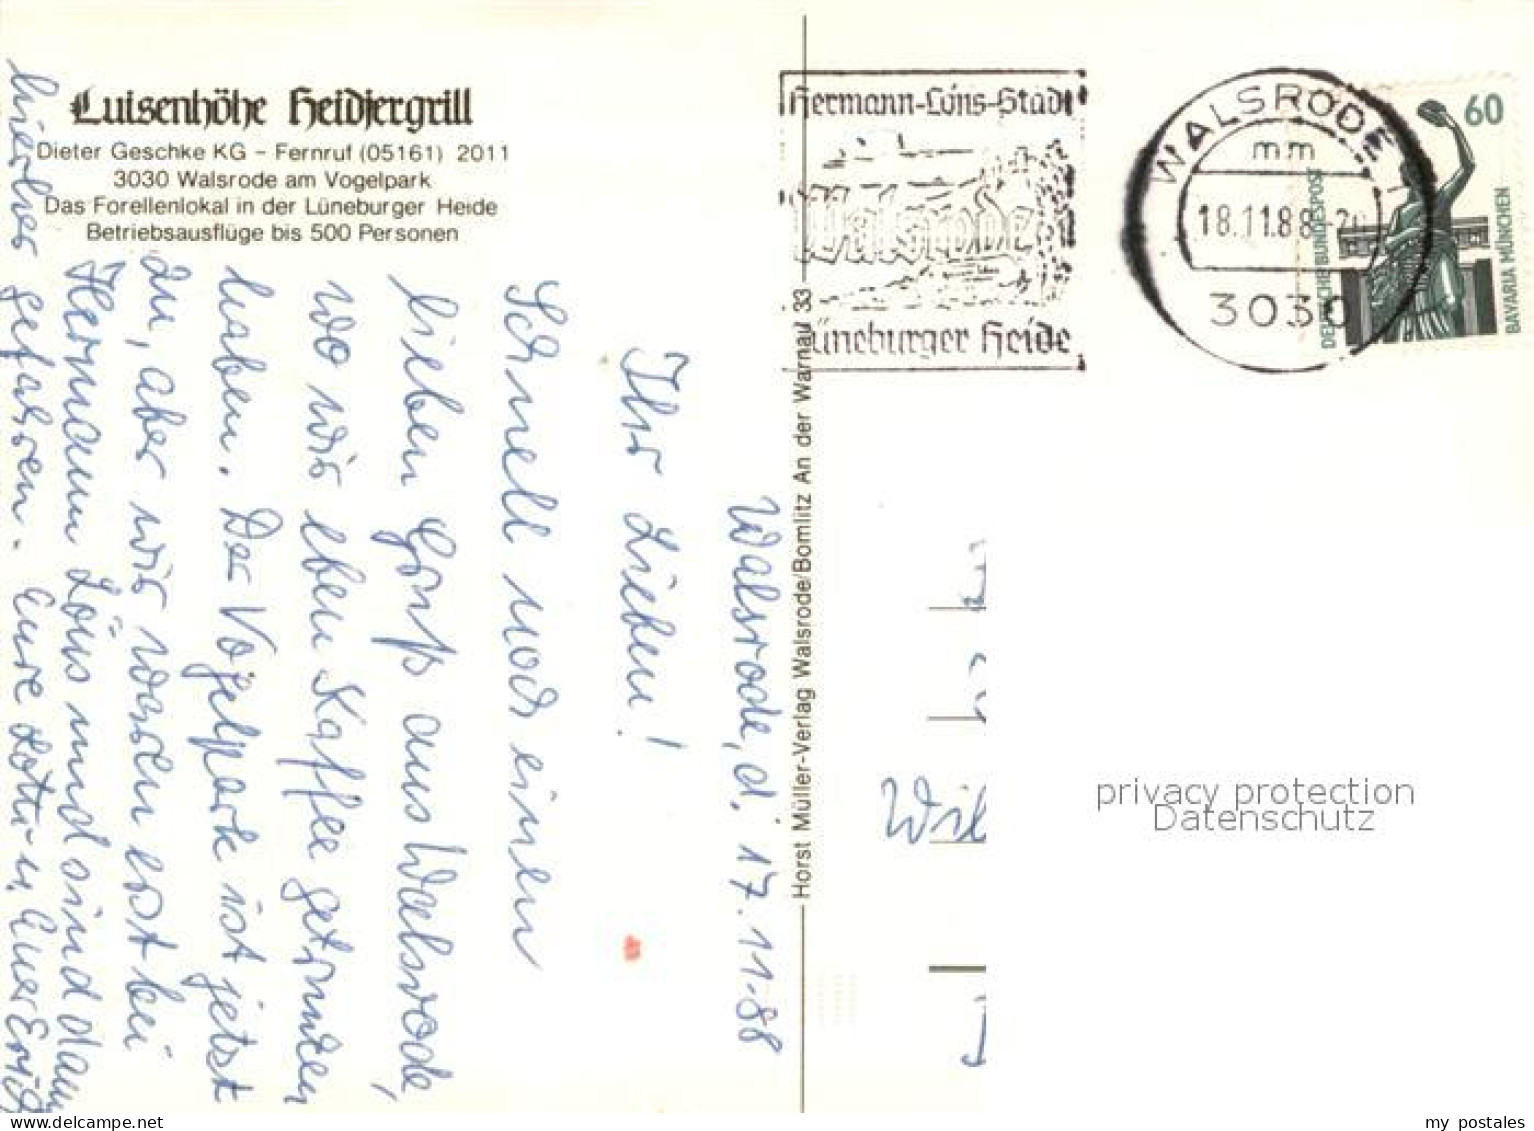 Luisenhöhe Heidjergrill
Dieter Geschke KG – Fernruf (05161) 2011
3030 Walsrode am Vogelpark
Das Forellenlokal in der Lüneburger Heide
Betriebsausflüge bis 500 Personen
Walsrode, d. 17.11.88
Ihr Lieben!
Schnell noch einen
lieben Gruß aus Walsrode,
wo wir eben Kaffee getrunken
haben. Der Vogelpark ist jetzt
zu, aber wir waren erst bei
Hermann Löns und sind dann
hierher gefahren. Eure Lotti u. Euer Erich
Horst Müller-Verlag Walsrode/Bomlitz An der Warnau 33
Hermann-Löns-Stadt
Walsrode
Lüneburger Heide
WALSRODE 1
mm
18.11.88-20
3030
60
DEUTSCHE BUNDESPOST
BAVARIA MÜNCHEN
Wil
privacy protection
Datenschutz
my postales